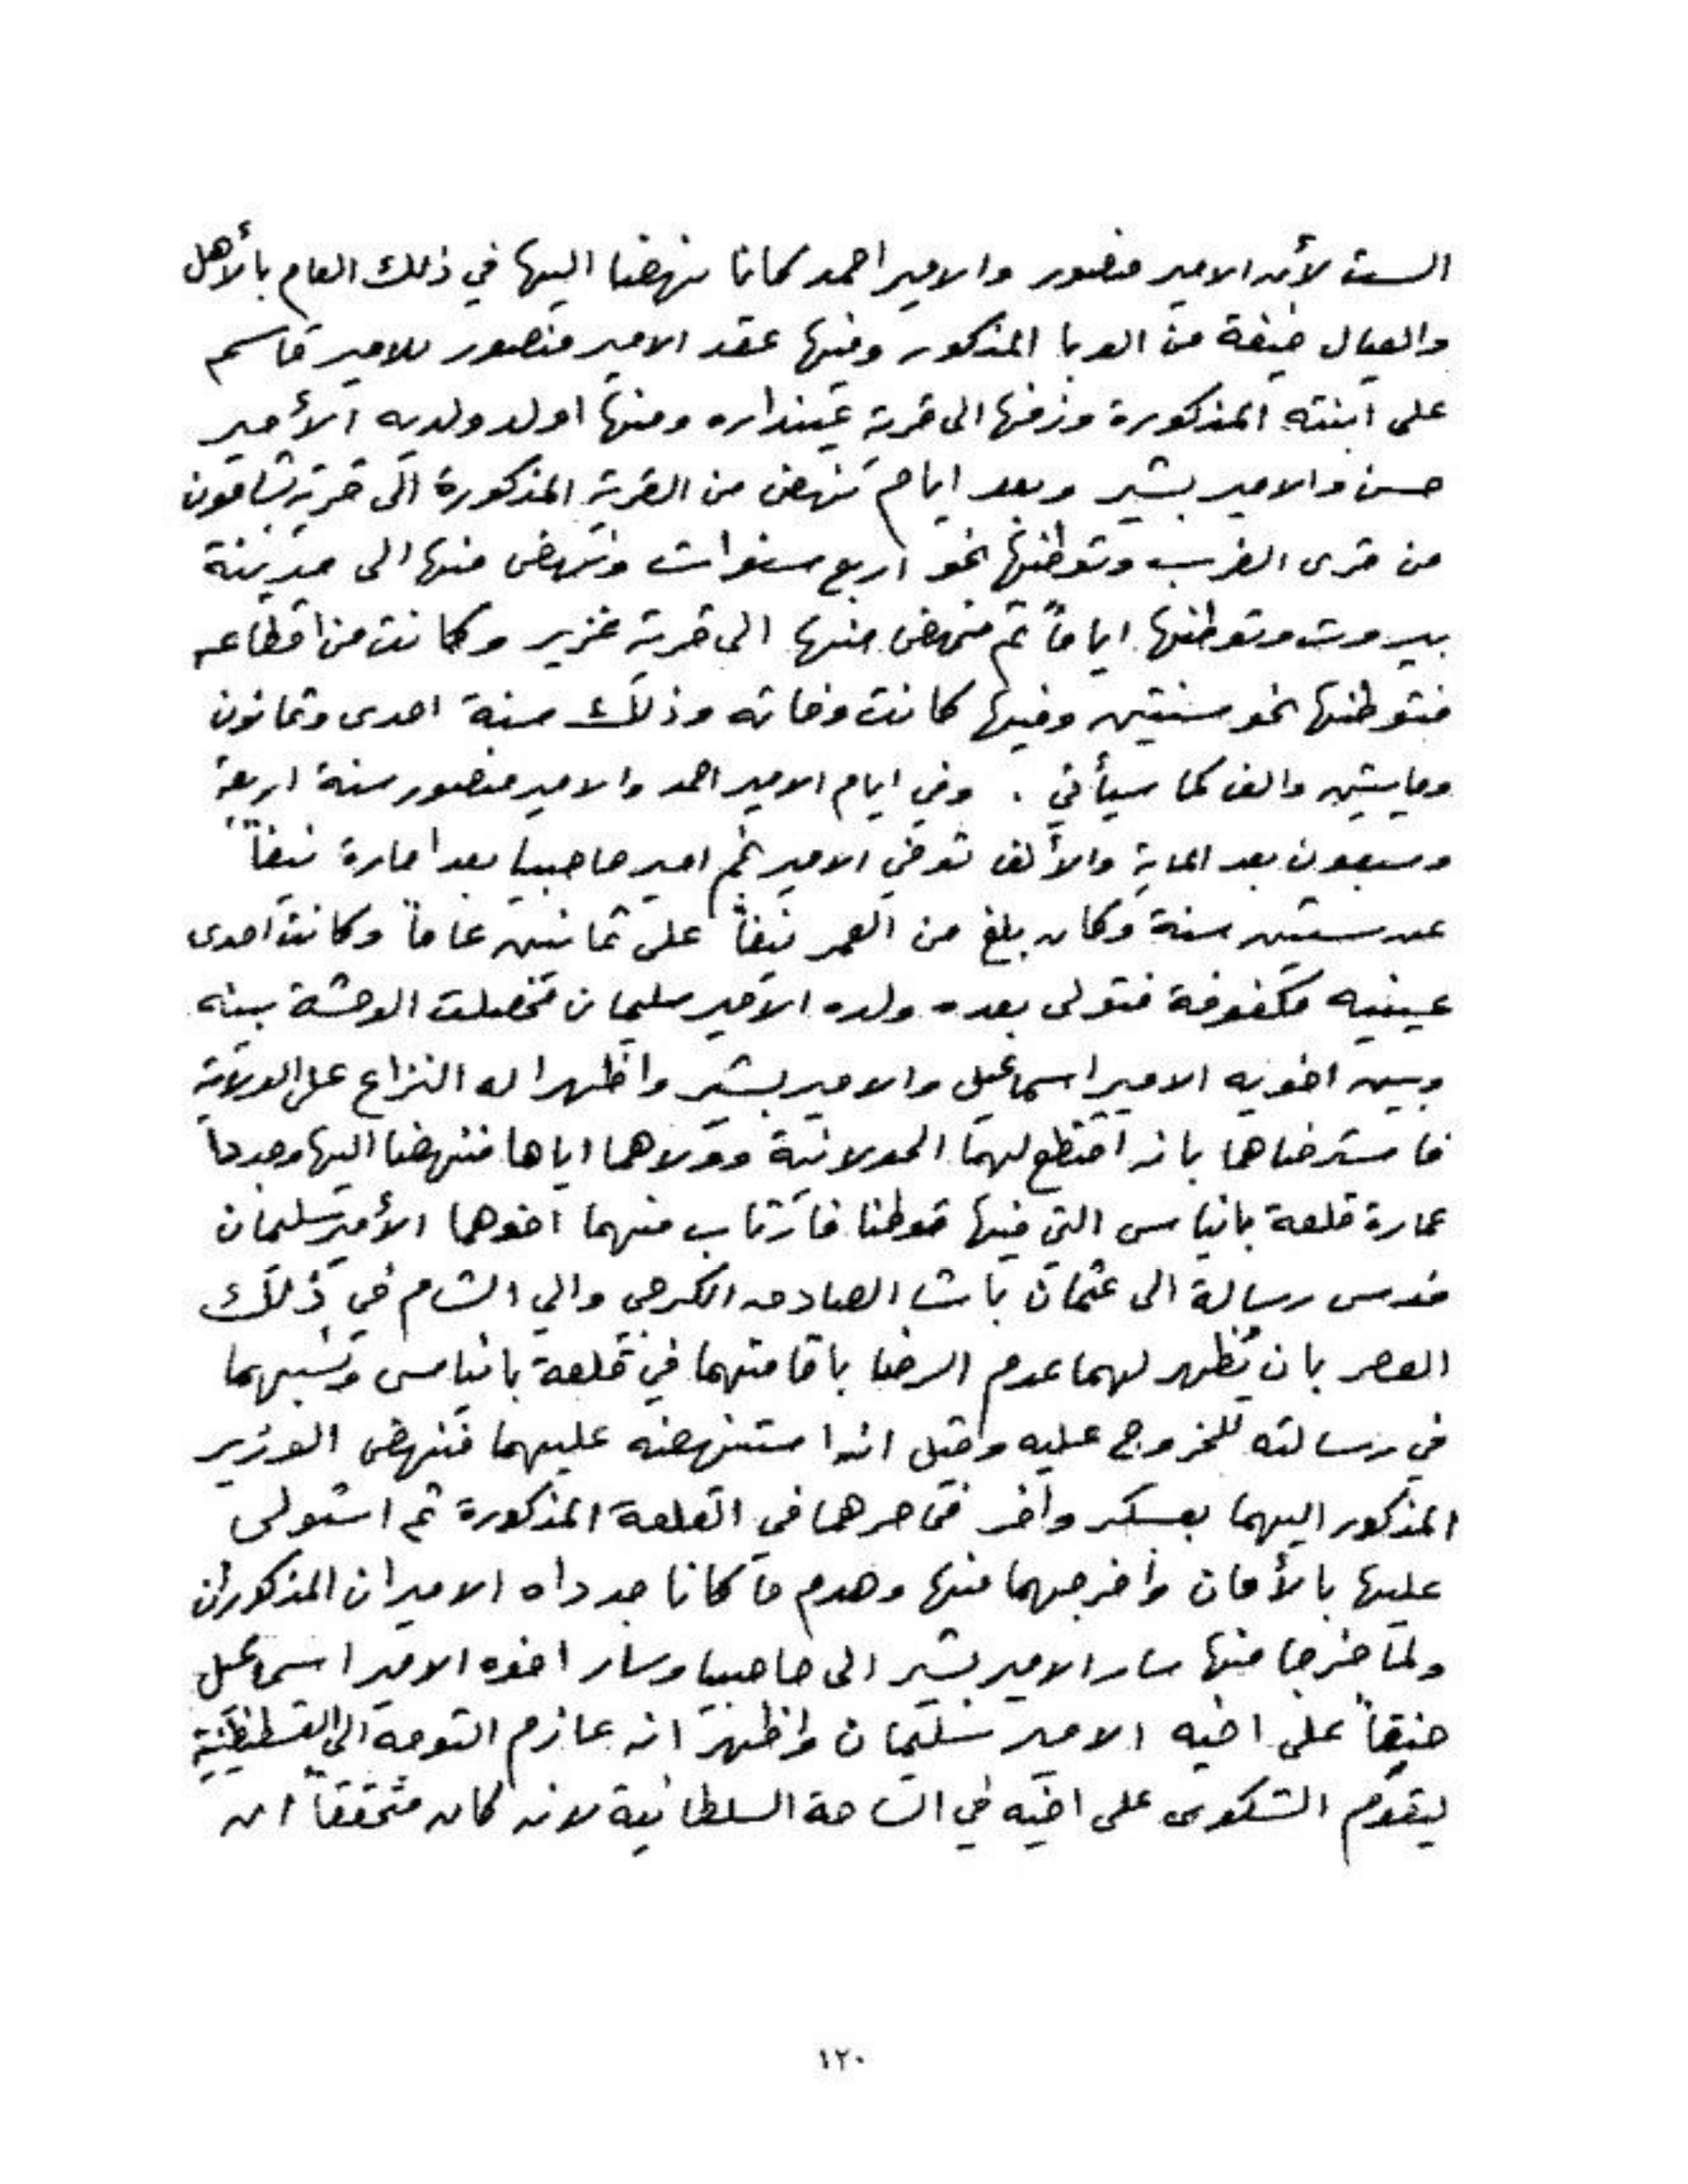 الست لأن الامير منصور والامير احمد كانا نهضا اليها في ذلك العام بالأهل
والعيال خيفة من الوبا المذكور وفيها عقد الامير منصور للامير قاسم
على ابنته المذكورة وزفها الى قرية عينداره ومنها اولد ولديه الأمير
حسن والامير بشير وبعد ايام نهض من القرية المذكورة الى قرية بشامون
من قرى الغرب وتوطنها نحو اربع سنوات ونهض منها الى مدينة
بيروت وتوطنها اياماً ثم نهض منها الى قرية غزير وكانت من اقطاعه
فتوطنها نحو سنتين وفيها كانت وفاته وذلك سنة احدى وثمانون
ومايتين والف كما سيأتي . وفي ايام الامير احمد والامير منصور سنة اربعة
وسبعون بعد الماية والألف توفي الامير نجم امير حاصبيا بعد امارة نيفاً
عن ستين سنة وكان بلغ من العمر نيفاً على ثمانين عاماً وكانت احدى
عينيه مكفوفة فتولى بعده ولده الامير سليمان فحصلت الوحشة بينه
وبين اخويه الامير اسماعيل والامير بشير واظهرا له النزاع على الولاية
فاسترضاهما بانه اقتطع لهما الحولانية وولاهما اياها فنهضا اليها وجددا
عمارة قلعة بانياس التي فيها قوطنا فارتاب منهما اخوهما الأمير سليمان
فدس رسالة الى عثمان باشا الصادق الكرجي والي الشام في ذلك
العصر بان يظهر لهما عدم الرضا باقامتهما في قلعة بانياس ونسبهما
في رسالته للخروج عليه وقيل انه استنهضه عليهما فنهض الوزير
المذكور اليهما بعسكر وافر فحاصرهما في القلعة المذكورة ثم استولى
عليها بالأمان واخرجهما منها وهدم ما كانا جدداه الاميران المذكوران
ولما خرجا منها سار الامير بشير الى حاصبيا وسار اخوه الامير اسماعيل
حنقاً على اخيه الامير سليمان واظهر انه عازم التوجه الى القسطنطينية
ليقدم الشكوى على اخيه في الساحة السلطانية لانه كان متحققاً ان
١٢٠